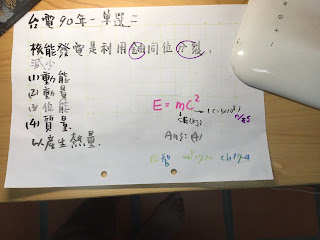 台電90年-單選二
核能發電是利用鈾同位分裂,
減少
(1) 動能
(2) 動量
(3) 位能
(4) 質量
以產生熱量.
E = mC²
Ans: (4)
ch17-4